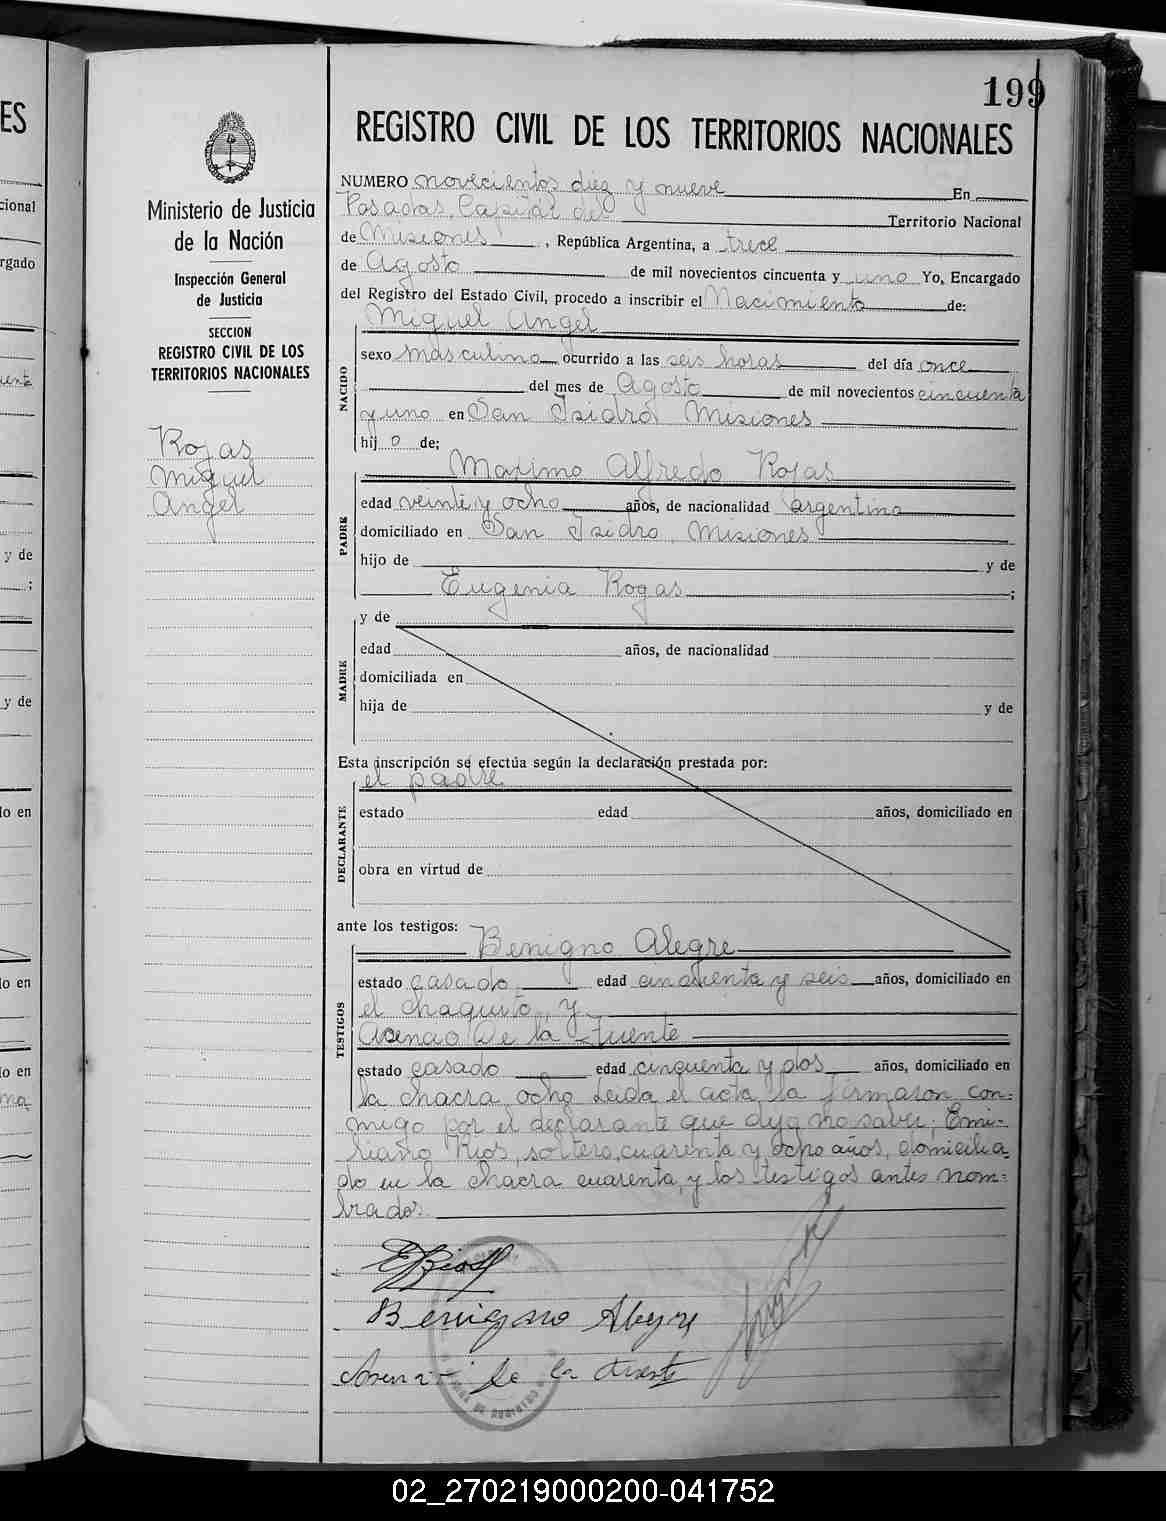 199
REGISTRO CIVIL DE LOS TERRITORIOS NACIONALES
Ministerio de Justicia
de la Nación
Inspección General
de Justicia
SECCION
REGISTRO CIVIL DE LOS
TERRITORIOS NACIONALES
Rojas
Miguel
Angel
NUMERO novecientos diez y nueve En
Posadas, Capital del Territorio Nacional
de Misiones, República Argentina, a trece
de Agosto de mil novecientos cincuenta y uno Yo, Encargado
del Registro del Estado Civil, procedo a inscribir el Nacimiento de:
Miguel Angel
NACIDO
sexo masculino ocurrido a las seis horas del día once
del mes de Agosto de mil novecientos cincuenta
y uno en San Isidro, Misiones
hijo de;
Maximo Alfredo Rojas
PADRE
edad veinte y ocho años, de nacionalidad argentina
domiciliado en San Isidro, Misiones
hijo de y de
Eugenia Rogas;
MADRE
y de
edad años, de nacionalidad
domiciliada en
hija de y de
Esta inscripción se efectúa según la declaración prestada por:
el padre
DECLARANTE
estado edad años, domiciliado en
obra en virtud de
ante los testigos:
Benigno Alegre
TESTIGOS
estado casado edad cincuenta y seis años, domiciliado en
el chaquito, y
De la Fuente
estado casado edad cinquenta y dos años, domiciliado en
la chacra ocho Leida el acta, la firmaron con-
migo por el declarante que dijo no saber; Emi-
liano Rios, soltero, cuarenta y ocho años, domicilia-
do en la chacra cuarenta, y los testigos antes nom-
brados.
E Rios
Benigno Alegre
De la Fuente
ES
cional
rgado
y de
;
y de
do en
do en
do en
02_270219000200-041752